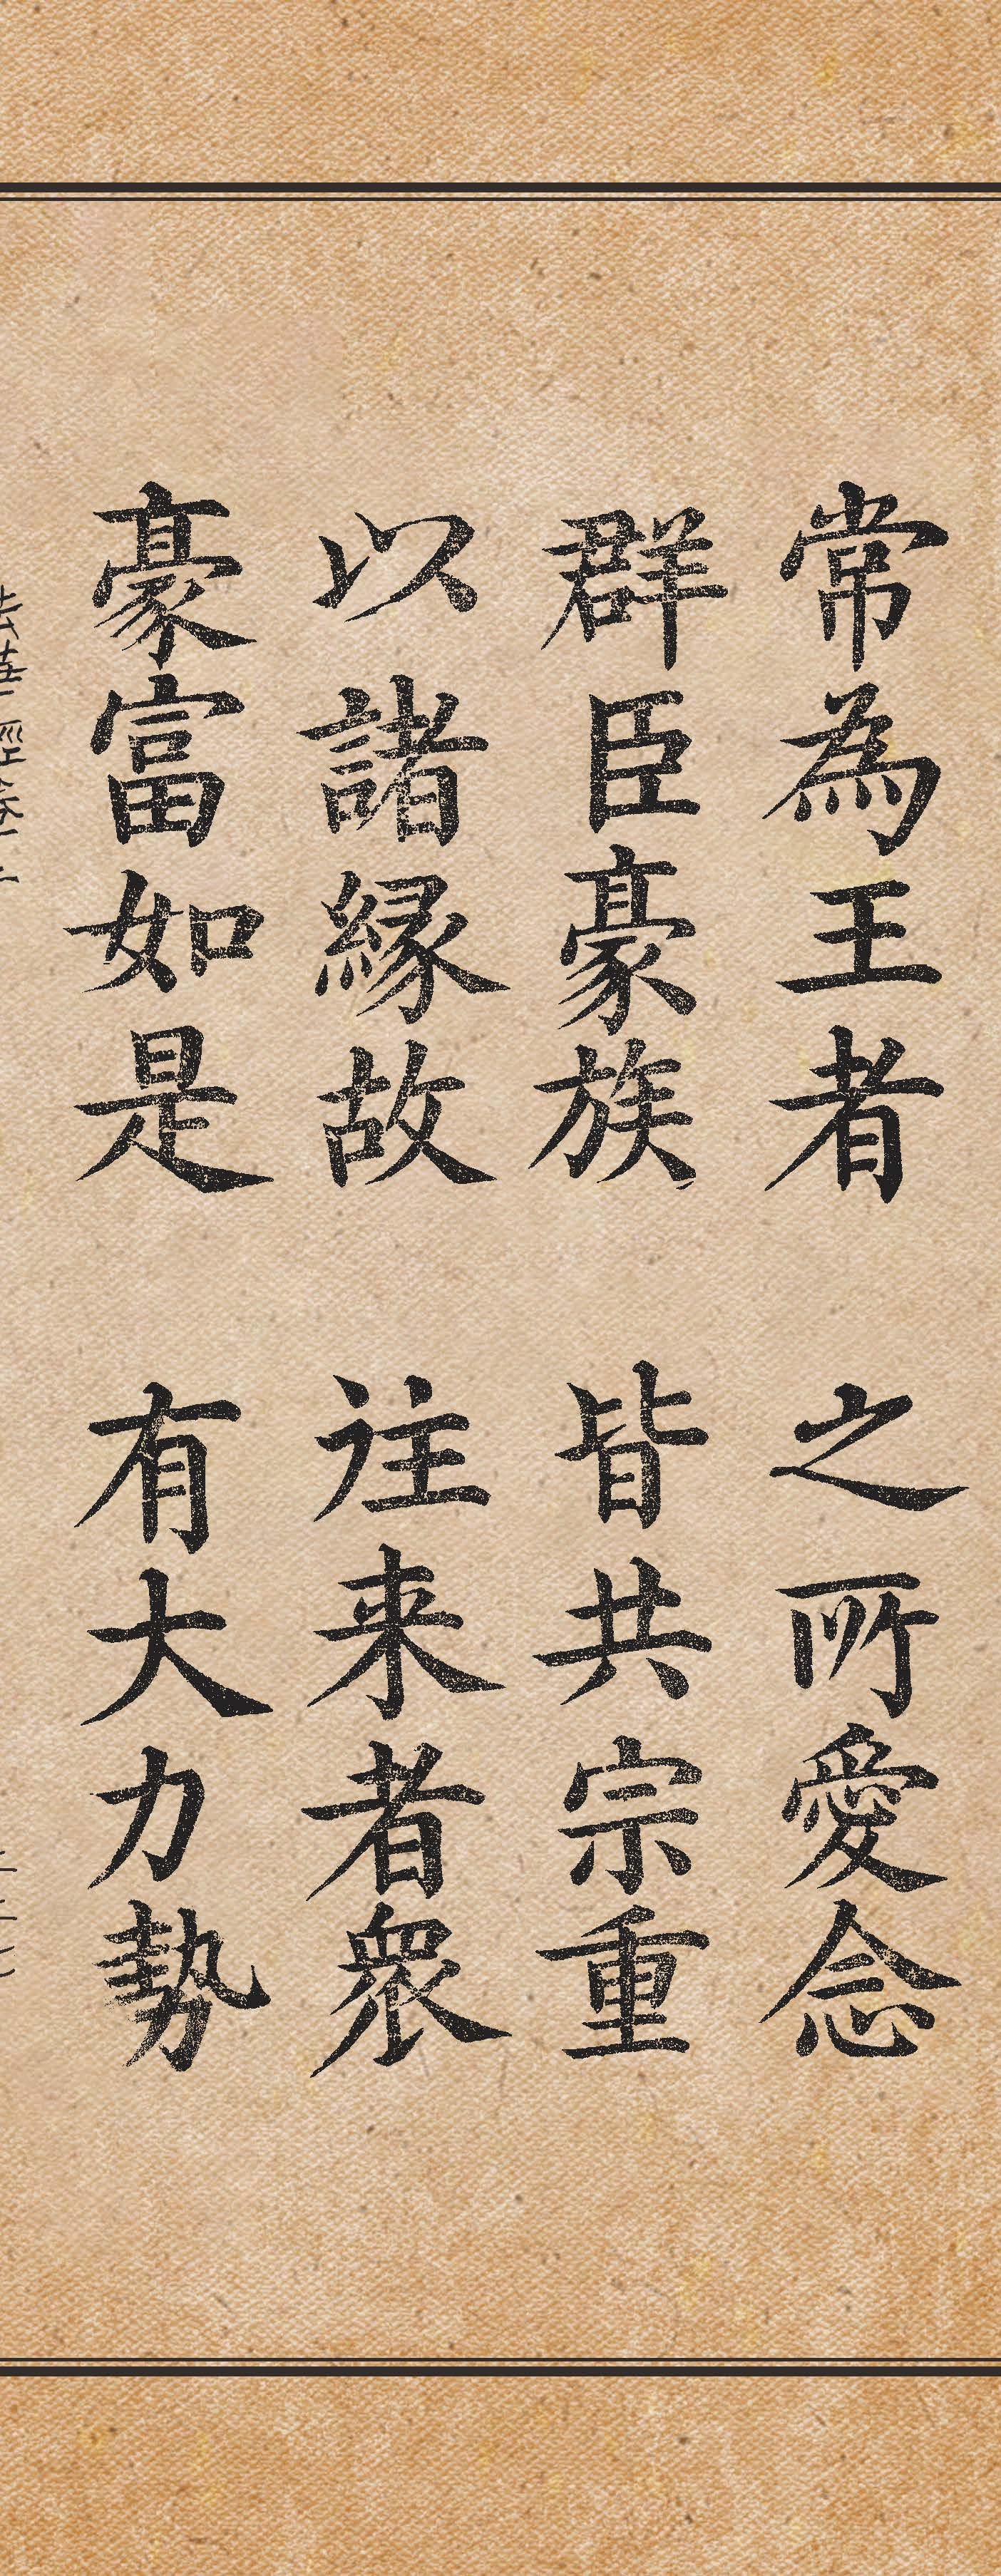 常為王者 之所愛念
群臣豪族 皆共宗重
以諸縁故 往来者衆
豪富如是 有大力勢